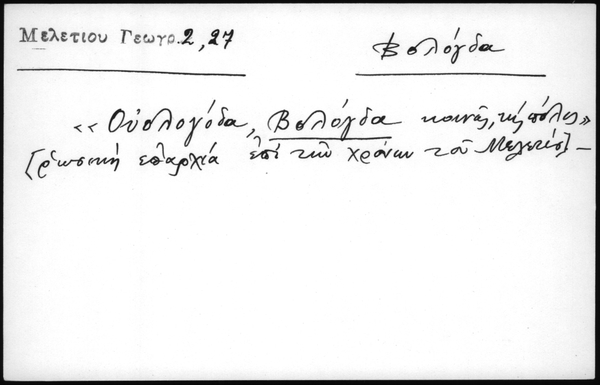 Μελετιου Γεωγρ. 2, 27
Βολόγδα
«Οὐολογόδα, Βολόγδα κοινῶς, τῆς πόλις»
[ρωσικὴ ἐπαρχία ἐπὶ τῶν χρόνων τοῦ Μελετίου] —